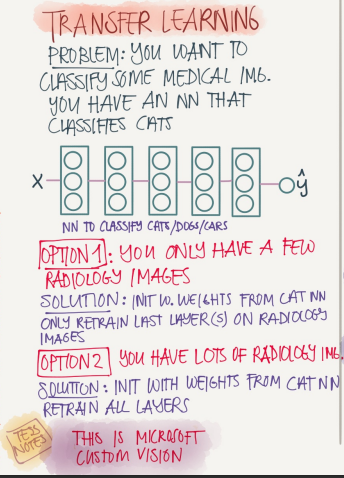 TRANSFER LEARNING
PROBLEM: YOU WANT TO
CLASSIFY SOME MEDICAL IMG.
YOU HAVE AN NN THAT
CLASSIFIES CATS
X ŷ
NN TO CLASSIFY CATS/DOGS/CARS
OPTION 1: YOU ONLY HAVE A FEW
RADIOLOGY IMAGES
SOLUTION: INIT W. WEIGHTS FROM CAT NN
ONLY RETRAIN LAST LAYER(S) ON RADIOLOGY
IMAGES
OPTION 2 YOU HAVE LOTS OF RADIOLOGY IMG.
SOLUTION: INIT WITH WEIGHTS FROM CAT NN
RETRAIN ALL LAYERS
TESS
NOTES
THIS IS MICROSOFT
CUSTOM VISION